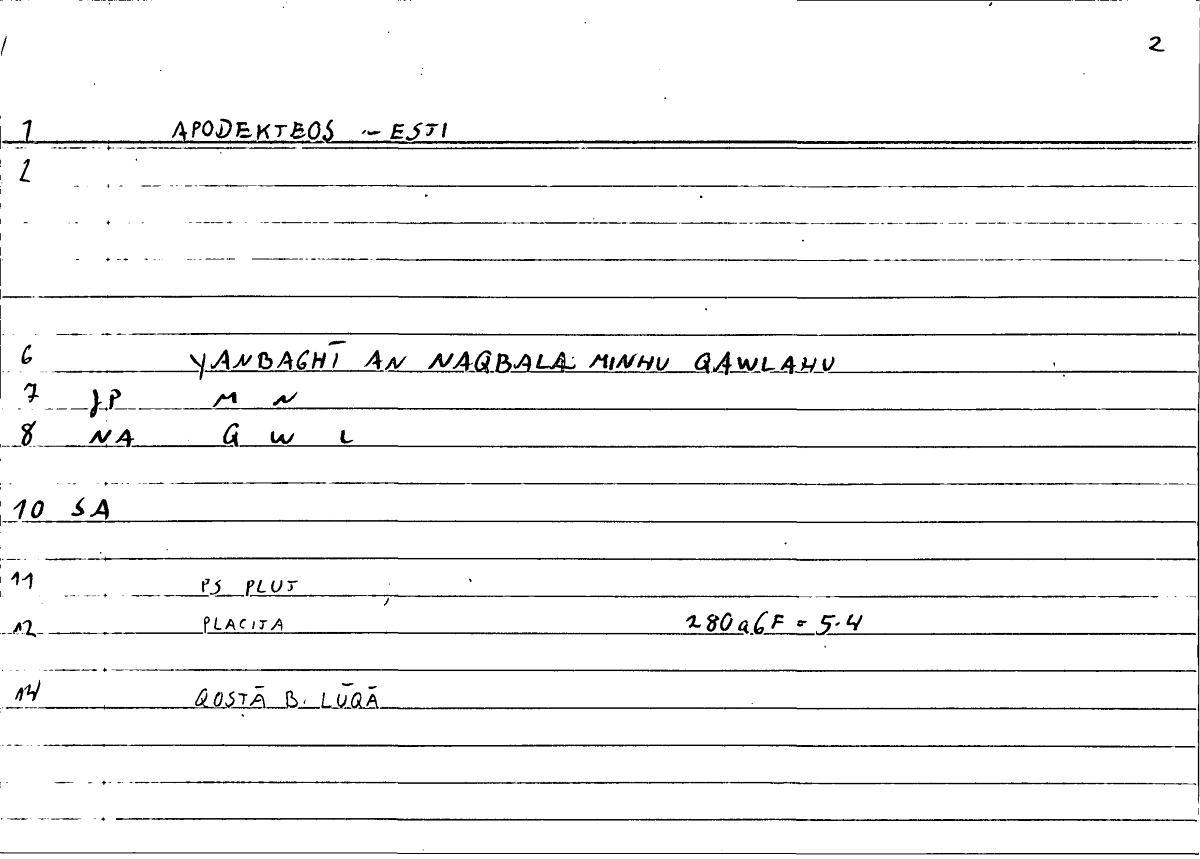 / 2
1 APODEKTEOS ~ ESTI
2
6 YANBAGHĪ AN NAQBALA MINHU QAWLAHU
7 JP M N
8 NA Q W L
10 SA
11 PS PLUT
12 PLACITA 280a6F = 5.4
14 QOSṬĀ B. LŪQĀ